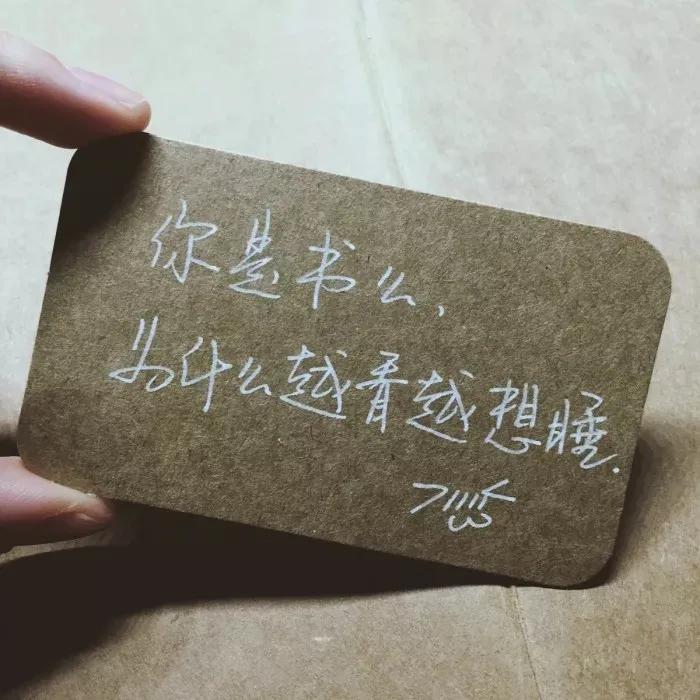 你是书么,
为什么越看越想睡.